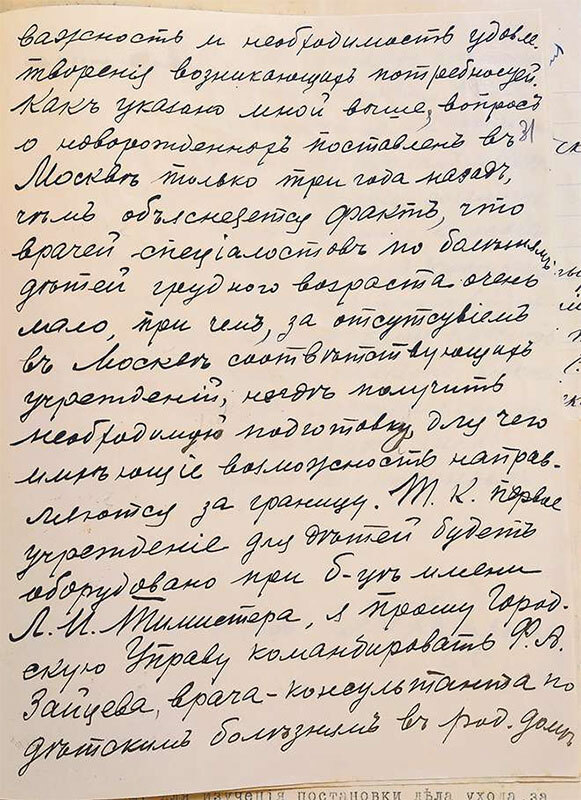 важность и необходимость удовле-
творенія возникающихъ потребностей.
Какъ указано мной выше, вопросъ
о новорожденныхъ поставленъ въ
31
Москвѣ только три года назадъ,
чѣмъ объясняется фактъ, что
врачей спеціалостовъ по болѣзнямъ
дѣтей грудного возраста очень
мало, при чемъ, за отсутсвіемъ
въ Москвѣ соотвѣтствующихъ
учрежденій, негдѣ получить
необходимую подготовку, для чего
имѣющіе возможность направ-
ляются за границу. Т. К. первое
учрежденіе для дѣтей будетъ
оборудовано при б-цѣ имени
Л. И. Тимистера, я прошу Город-
скую Управу командировать Ф. А.
Зайцева, врача-консультанта по
дѣтскимъ болѣзнямъ въ род. домѣ
изученія постановки дѣла ухода за